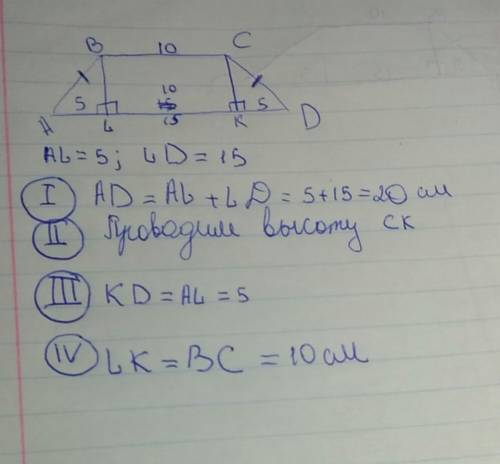 B 10 C
5 10 5
A L 15 K D
AL = 5; LD = 15
I AD = AL + LD = 5 + 15 = 20 см
II Проводим высоту СК
III KD = AL = 5
IV LK = BC = 10 см